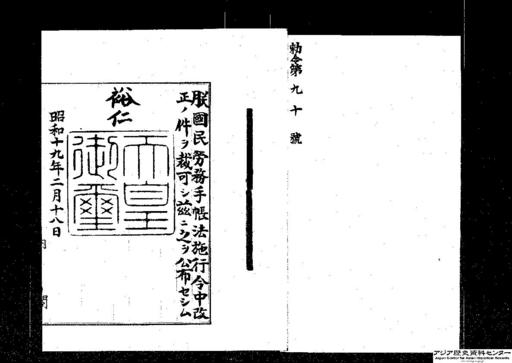 勅令第九十號
朕國民勞務手帳法施行令中改
正ノ件ヲ裁可シ茲ニ之ヲ公布セシム
裕仁
天皇御璽
昭和十九年二月十八日
アジア歴史資料センター
Japan Center for Asian Historical Records